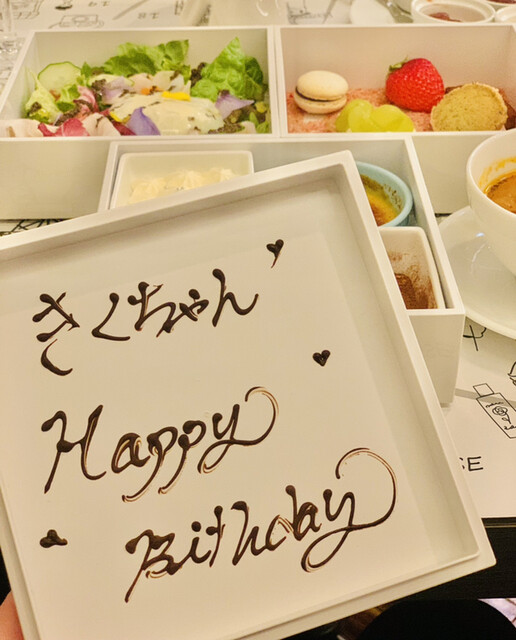 きくちゃん
Happy
Birthday